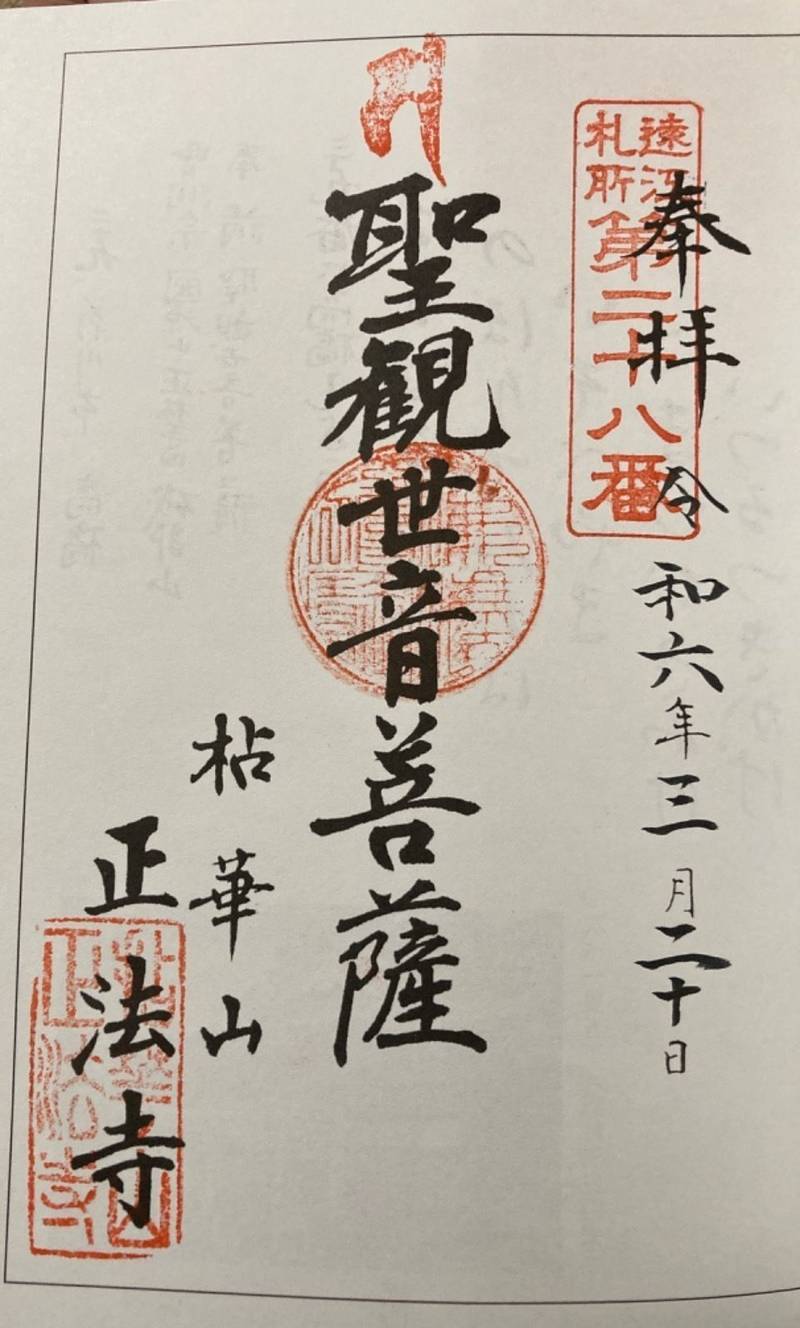 遠江
札所第二十八番
奉拝
令和六年三月二十日
聖観世音菩薩
枯華山
正法寺